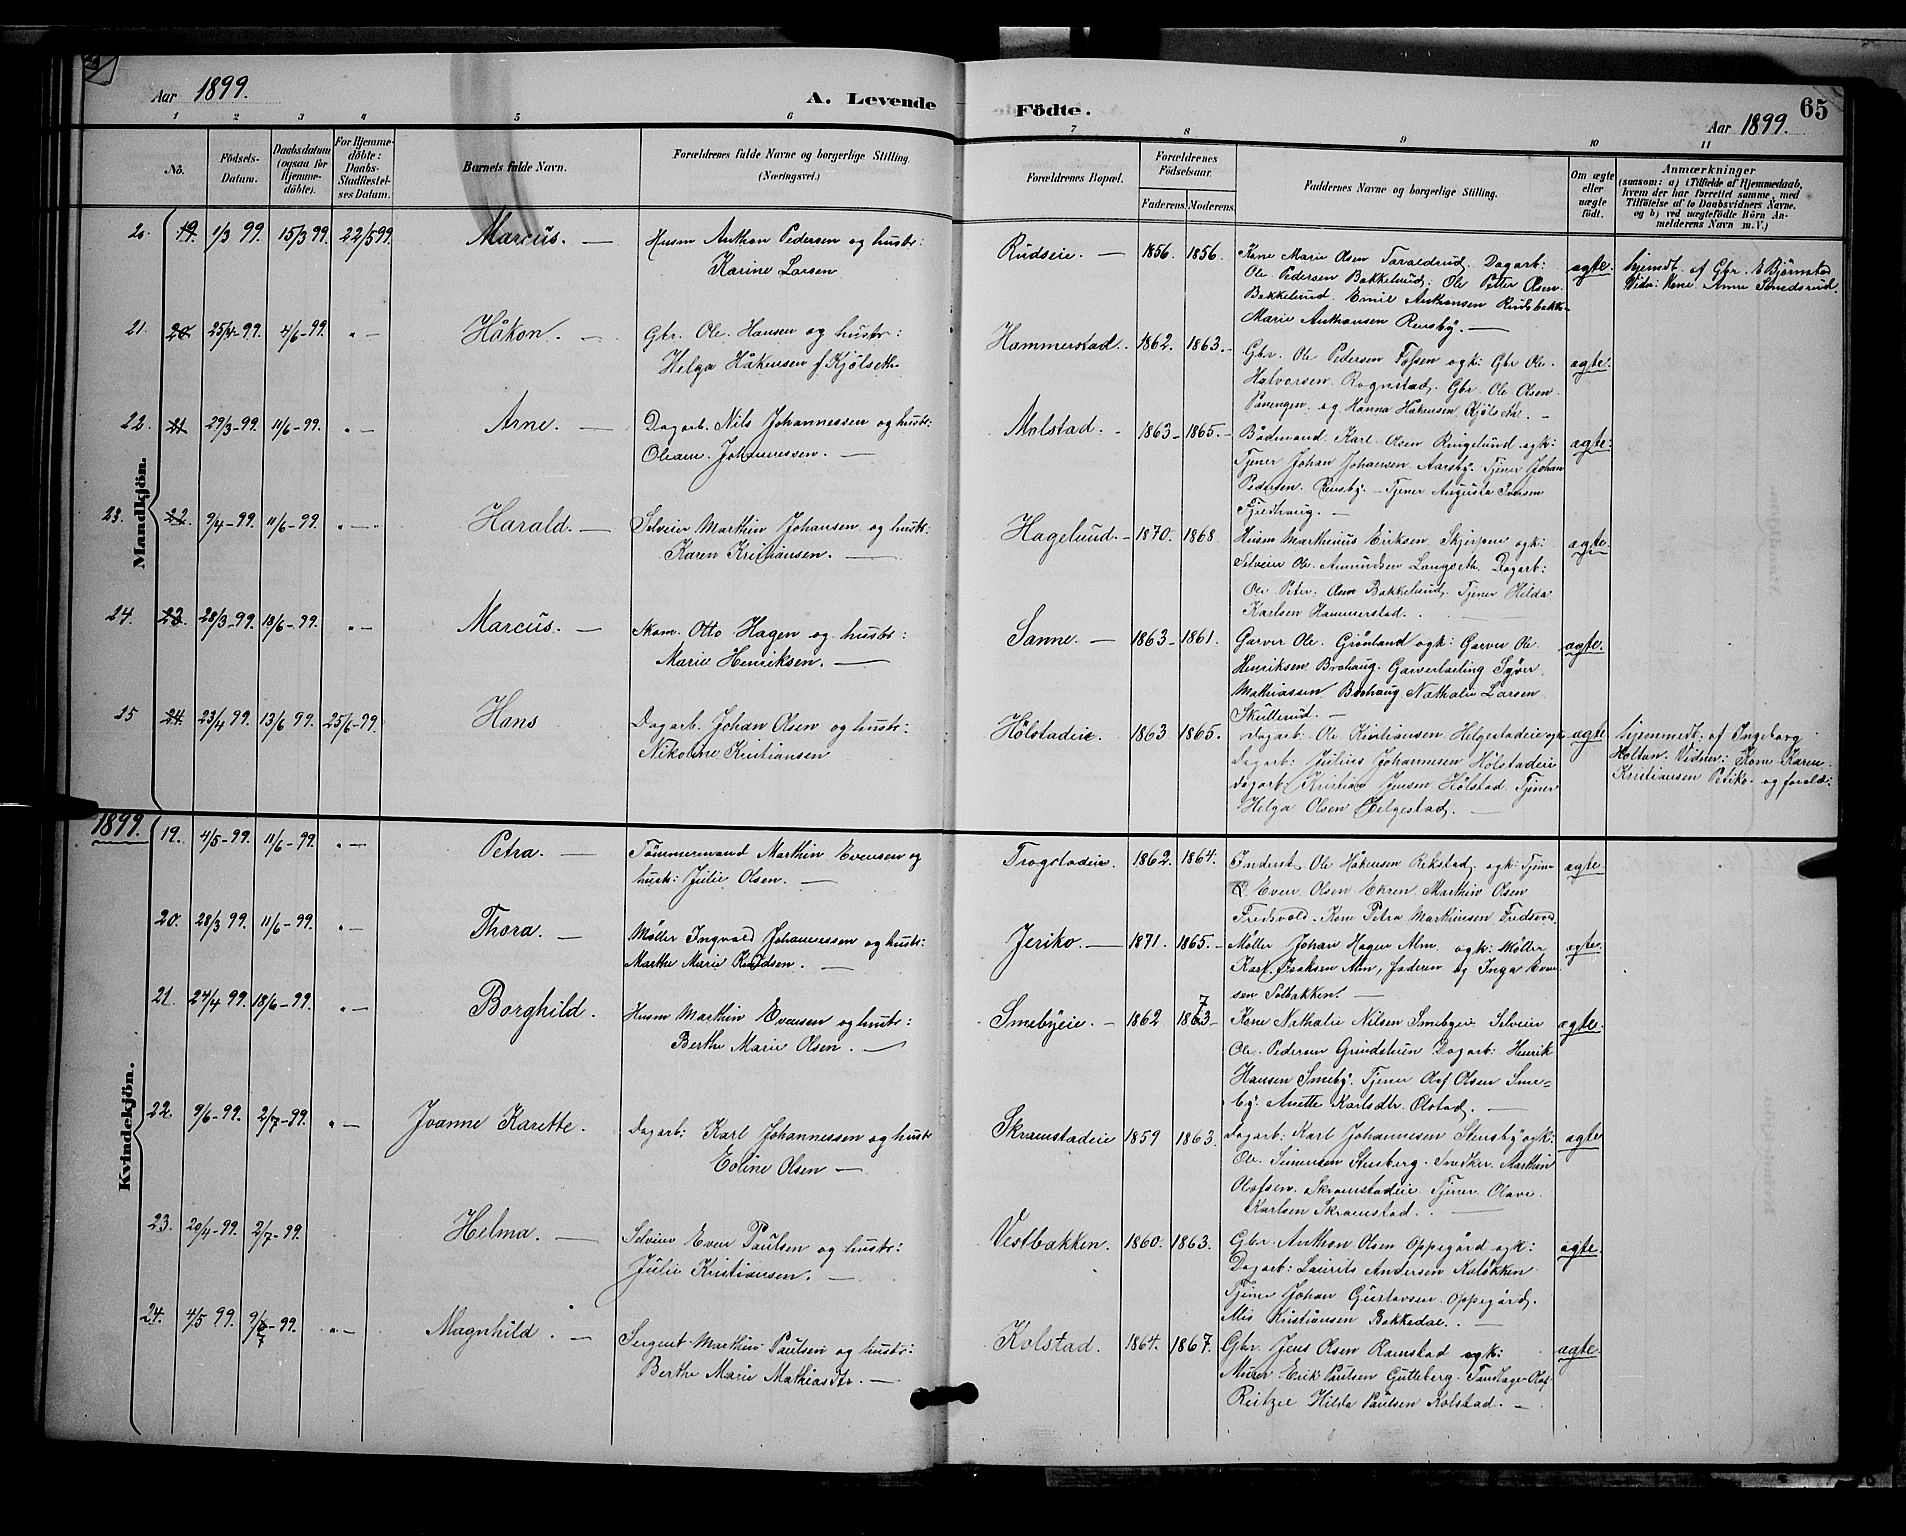 Aar 1899.
A. Levende
Födte.
Aar 1899.
65
1
2
3
4
5
6
7
8
9
10
11
No.
Födsels-
Datum.
Daabsdatum
(ogsaa for
Hjemme-
döbte).
For Hjemme-
döbte:
Daabs-
Stadfæstel-
ses Datum.
Barnets fulde Navn.
Forældrenes fulde Navne og borgerlige Stilling.
(Næringsvei.)
Forældrenes Bopæl.
Forældrenes
Födselsaar.
Faderens.
Moderens.
Faddernes Navne og borgerlige Stilling.
Om ægte
eller
uægte
født.
Anmærkninger
(saasom: a) i Tilfælde af Hjemmedaab,
hvem der har forrettet samme, med
Tilføielse af to Daabsvidners Navne,
og b) ved uægtefødte Börn An-
melderens Navn m.V.)
Mandkjön.
20. 19. 1/3 99. 15/3 99. 22/5 99. Marcus. —
Husm Anthon Pedersen og hustr:
Karine Larsen
Rudseie. — 1856. 1856.
Kone Marie Olsen Taraldrud, Dagarb:
Ole Pedersen Bakkelund. Ole Petter Olsen
Bakkelund. Emil Anthonsen Rudsbakke
Marie Anthonsen Rensby. —
ægte.
hjemdt. af Gbr. E Bjørnstad
Vidn: Kone Anne Smedsrud.
21. 20. 25/4-99. 4/6-99. "— Håkon. —
Gbr. Ole Hansen og hustr:
Helga Håkensen f. Kjølseth
Hammerstad. 1862. 1863.
Gbr. Ole Pedersen Fossen og k: Gbr Ole
Halvorsen Rognstad. Gbr. Ole Olsen
og Hanna Håkensen Kjølseth. —
ægte.
22. 21. 29/3-99. 11/6-99. "— Arne. —
Dagarb. Nils Johannessen og hustr:
Oleane Johannessen. —
Molstad. - 1863- 1865.-
Bådmand Karl Olsen Ringelund og k:
Tjener Johan Johansen Aarsby. Tjener Johan
Pedersen Rensby. — Tjener Augusta Iversen
—
ægte.
23. 22. 9/4-99. 11/6-99. "— Harald. —
Selveier Marthin Johansen og hustr:
Karen Kristiansen. —
Hagelund. - 1870. 1868
Husm Marthinius Eriksen Skjerpen og k:
Selveier Ole Amundsen Langseth. Dagarb:
Ole Peter Olsen Bakkelund. Tjener Hilda
Karlsen Hammerstad.
ægte.
24. 23. 28/3-99. 18/6-99. "— Marcus. —
Skom. Otto Hagen og hustr:
Marie Henriksen. —
Sanne. — 1863- 1861.
Garver Ole Grønland og k: Garver Ole
Henriksen Brohaug. Garverlærling Syver
Mathiassen Brohaug Nathalie Larsen
Skullerud. —
ægte.
25 24. 23/4 99. 13/6 99. 25/6-99. Hans
Dagarb. Johan Olsen og hustr:
Nikoline Kristiansen
Hølstadeie. 1863 1865.
Dagarb: Ole Kristiansen Helgestadeie og k:
Dagarb: Julius Johannesen Hölstadeie
Dagarb: Kristian Jensen Hölstad. Tjener
Helga Olsen Helgestad. —
ægte
hjemmedt. af Ingeborg
Holtan. Vidner: Kone Karen
Kristiansen Petiko. og foræld:
1899.
Kvindekjön.
19. 4/5-99. 11/6-99. "— Petra. —
Tømmermand Marthin Evensen og
hustr: Julie Olsen. —
Trogstadeie. 1862. 1864.
Inderst Ole Håkensen Rekstad, og k: Tjener
Even Olsen Ekren Marthin Olsen
Fredsvold. Kone Petra Marthinsen Fredsvold.
ægte.
20. 28/3 99. 11/6-99. "— Thora. —
Møller Ingvald Johannessen og hustr:
Marthe Marie Knudsen. —
Jeriko. — 1871. 1865.-
Møller Johan Hagen Alm og k: Møller
Karl Isaksen Alm, faderen og Inga Even
sen Solbakken. —
ægte.
21. 24/4 99. 18/6-99. "— Borghild.
Husm Marthin Evensen og hustr:
Berthe Marie Olsen. —
Smebyeie. — 1862 1863- 7
Kone Nathalie Nilsen Smebyeie Selveier
Ole Pedersen Grindstuen Dagarb: Henrik
Hansen Smeby. Tjener Olaf Olsen Sme-
by. Anette Karlsdtr. Olstad. —
ægte.
22. 9/6-99. 2/7-99. "— Jvanne Karette.
Dagarb: Karl Johannessen og hustr
Eoline Olsen —
Skramstadeie 1859 1863.
Dagarb: Karl Johannesen Stensby og k:
Ole Simensen Stensberg. Snedker Marthin
Olafsen Skramstadeie. Tjener Olave
Karlsen Skramstad. —
ægte
23. 20/4-99. 2/7-99. Helma. —
Selveier Even Paulsen og hustr:
Julie Kristiansen. —
Vestbakken. 1860. 1863.
Gbr Anthon Olsen Oppegård og k:
Dagarb: Laurits Andersen Kaløkken
Tjener Johan Gustavsen Oppegård.
Mis Kristiansen Bakkedal. —
ægte.
24. 4/5 99. 9/7-99. "— Magnhild. —
Sergent Marthin Paulsen og hustr:
Berthe Marie Mathiasdtr. —
Kolstad. 1864. 1867.
Gbr. Jens Olsen Ramstad og k:
Murer Erik Paulsen Gutteberg. Tandlæge Olaf
Reitzel Hilda Paulsen Kolstad. —
ægte.